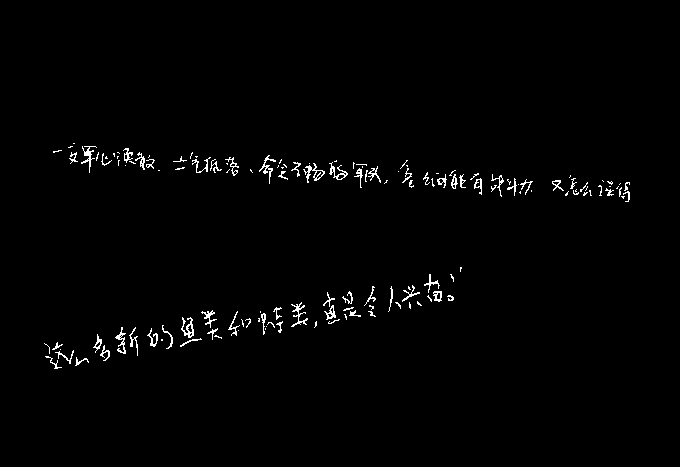 一支军心涣散、士气低落、命令不畅的军队,怎么可能有战斗力 又怎么评得
这么多新的鱼类和蛙类,真是令人兴奋。”